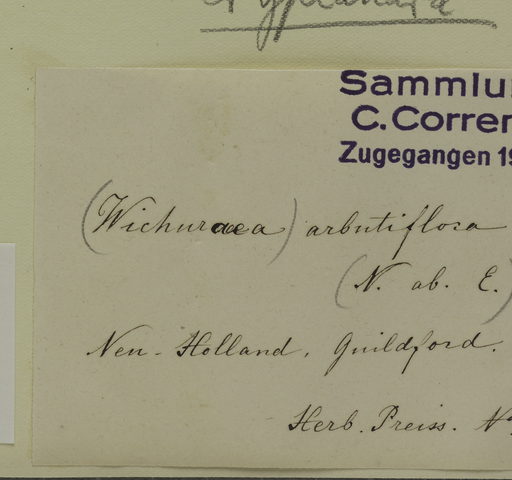 Sammlu
C. Corren
Zugegangen 19
(Wichuraea) arbutiflora
(N. ab. E.)
Neu-Holland, Guildford.
Herb. Preiss. N